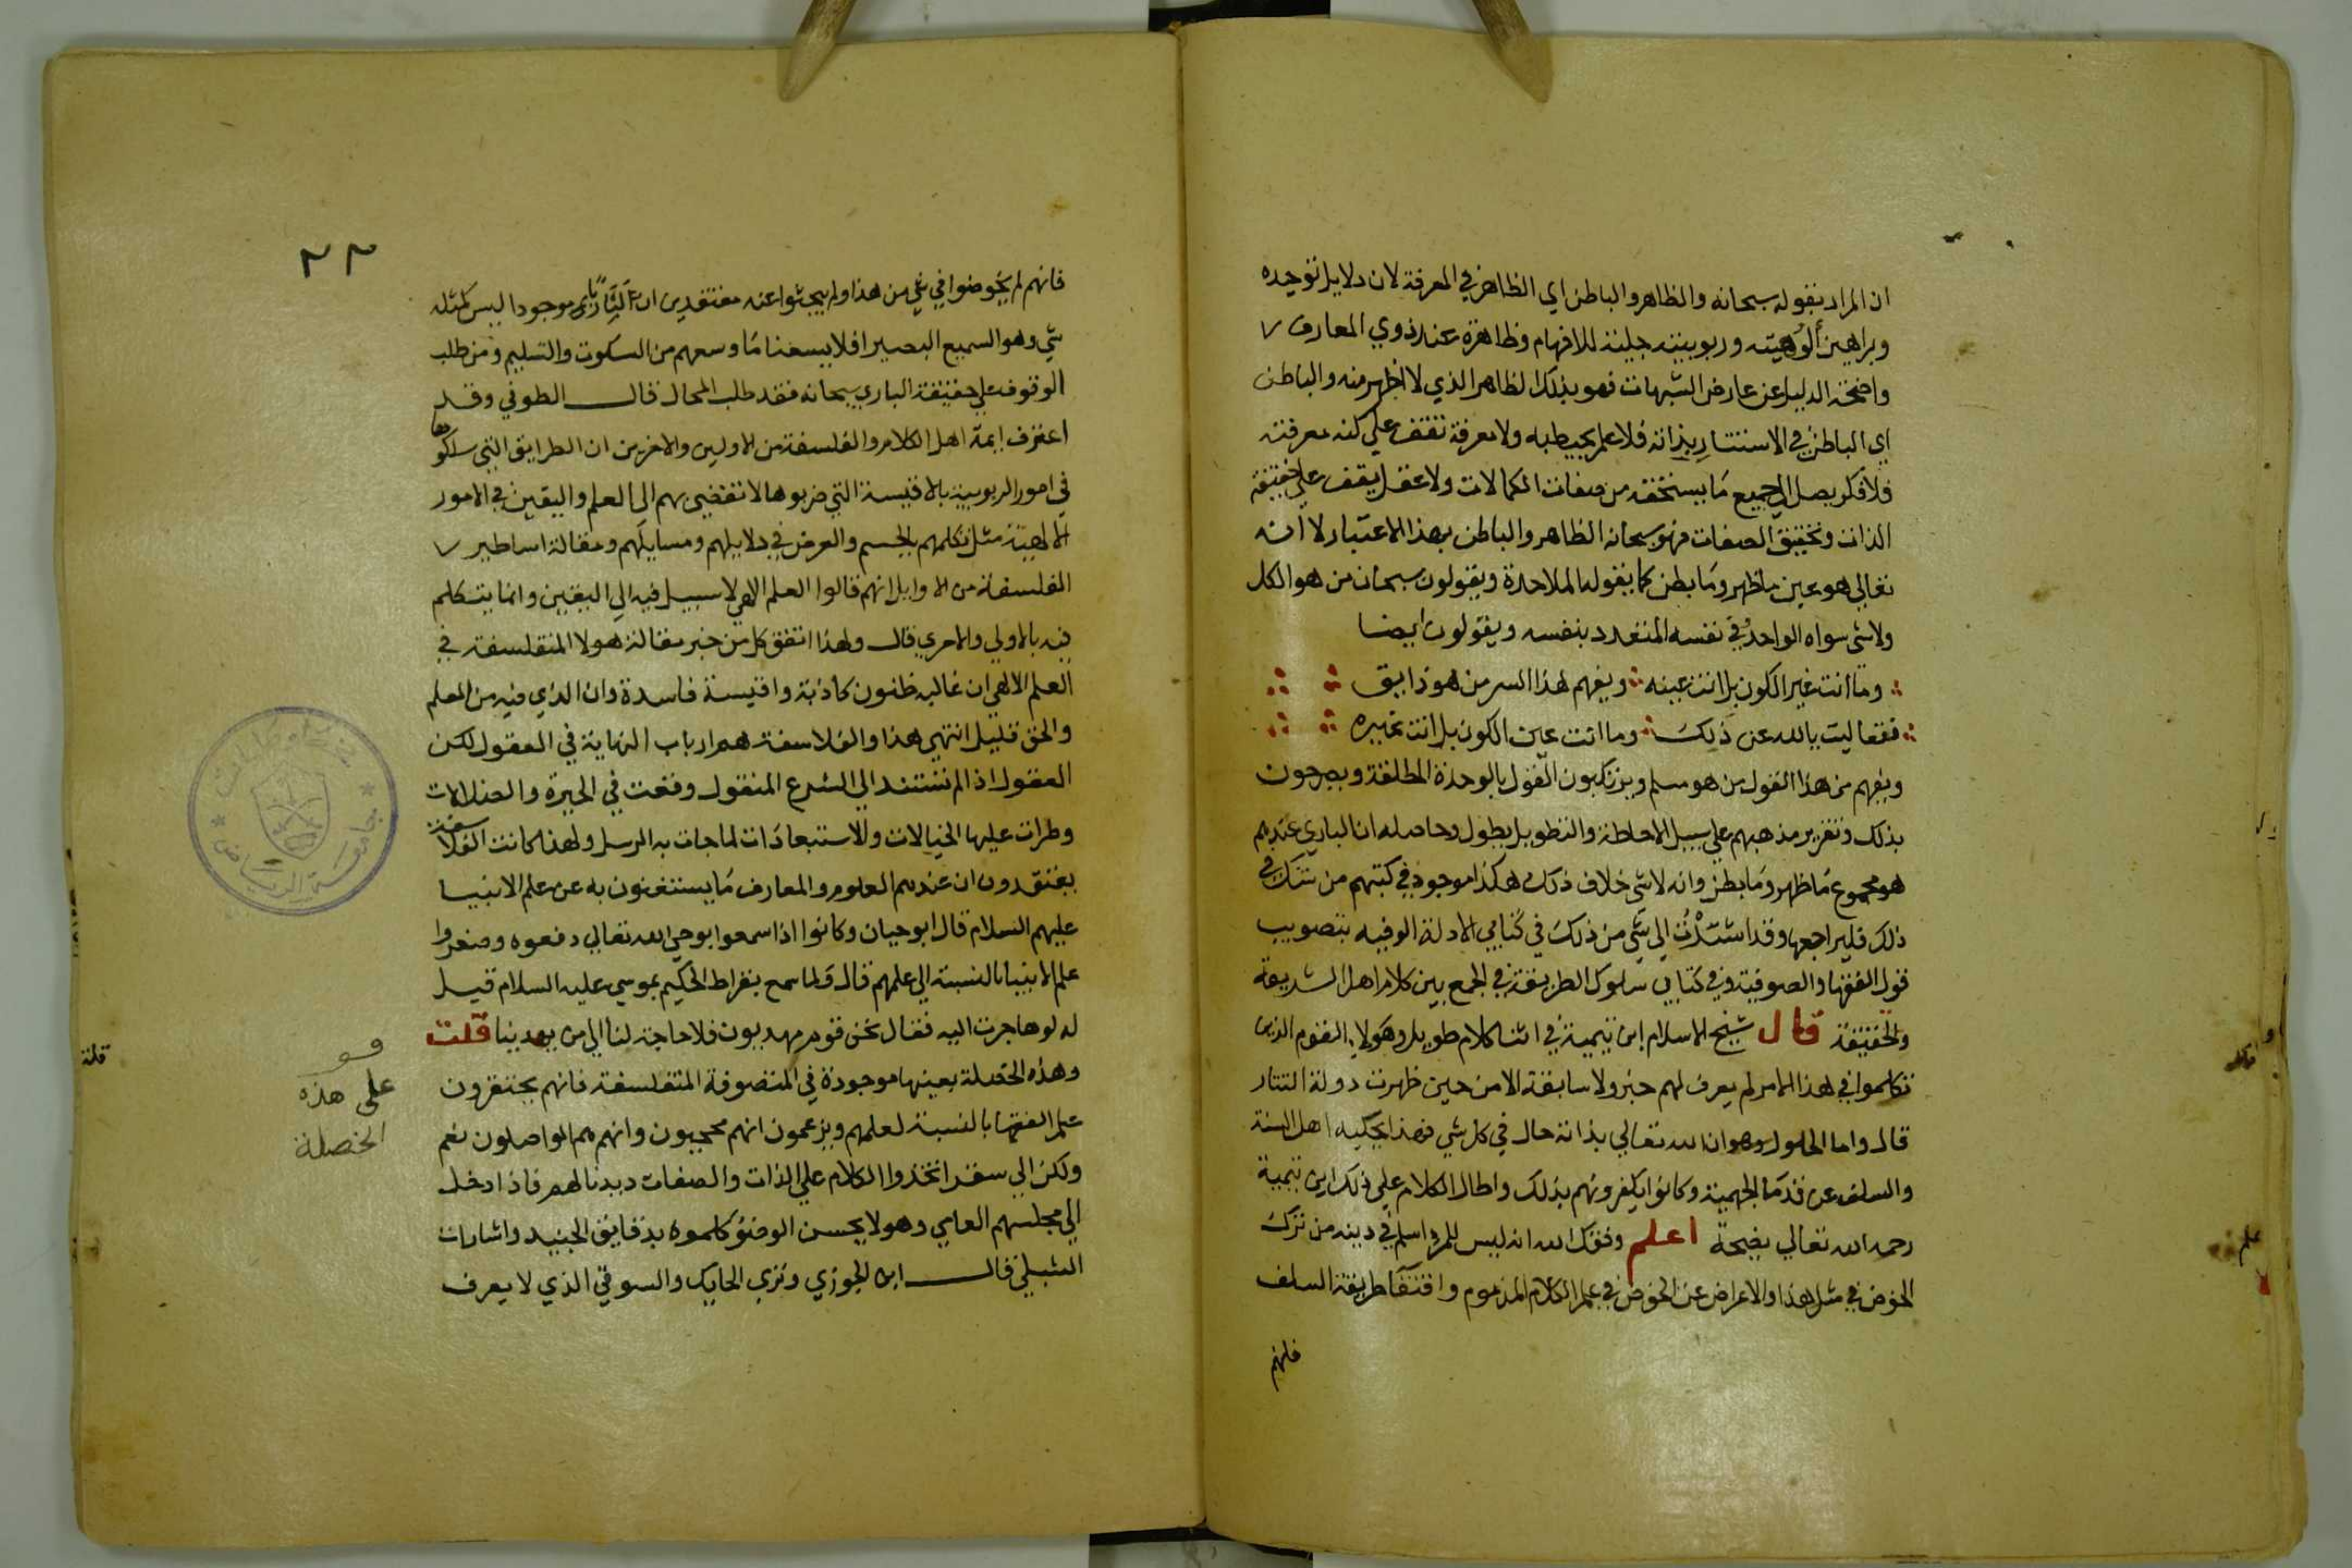 ان المراد بقوله سبحانه والظاهر والباطن اي الظاهر في المعرفة لان دلايل توحيده
وبراهين ألُوهيته وربوبيته جلية للافهام وظاهرة عند ذوي المعارف
واضحة الدليل عن عارض الشبهات فهو بذلك الظاهر الذي لا اظهر منه والباطن
اي الباطن في الاستتار بذاته فلا علم يحيط به ولا معرفة تقف علي كنه معرفته
فلا فكر يصل الي جميع ما يستحقه من صفات الكمالات ولا عقل يقف علي حقيقة
الذات وتحقيق الصفات فهو سبحانه الظاهر والباطن بهذا الاعتبار لا انه
تعالي هو عين ما ظهر وما بطن كما يقوله الملاحدة ويقولون سبحان من هو الكل
ولا شي سواه الواحد في نفسه المتعدد بنفسه ويقولون ايضا
وما انت غير الكون بل انت عينه ويفهم هذا السر من هو ذايق
فتعاليت يا الله عن ذلك وما انت عين الكون بل انت غيره
ويفهم من هذا القول من هو مسلم ويرتكبون القول بالوحدة المطلقة ويصرحون
بذلك وتقرير مذهبهم علي سبيل الاحاطة والتطويل يطول وحاصله ان الباري عندهم
هو مجموع ما ظهر وما بطن وانه لا شي خلاف ذلك هكذا موجود في كتبهم من شك في
ذلك فليراجعها وقد اشَرْتُ الي شي من ذلك في كتابي الادلة الوفيه بتصويب
قول الفقها والصوفية وفي كتابي سلوك الطريقة في الجمع بين كلام اهل الشريعة
والحقيقة قال شيخ الاسلام ابن تيمية في اثنا كلام طويل وهولاء القوم الذين
تكلموا في هذا الامر لم يعرف لهم خبر ولا سابقة الا من حين ظهرت دولة التتار
قال واما الحلول وهو ان الله تعالي بذاته حال في كل شي فهذا يحكيه اهل السنة
والسلف عن قدما الجهمية وكانوا يكفرونهم بذلك واطال الكلام علي ذلك ابن تيمية
رحمه الله تعالي نصيحة اعلم وفقك الله انه ليس للمرء اسلم في دينه من ترك
الخوض في مثل هذا والاعراض عن الخوض في علم الكلام المذموم واقتفا طريقة السلف
فانهم
٢٢
فانهم لم يخوضوا في شي من هذا ولم يبحثوا عنه معتقدين ان موجودا ليس كمثله
شي وهو السميع البصير افلا يسعنا ما وسعهم من السكوت والتسليم ومن طلب
الوقوف علي حقيقة الباري سبحانه فقد طلب المحال قال الطوفي وقد
اعترف ايمة اهل الكلام والفلسفة من الاولين والاخرين ان الطرايق التي سلكوها
في امور الربوبية بالاقيسة التي ضربوها لا تفضي بهم الي العلم واليقين في الامور
الالهية مثل تكلمهم بالجسم والعرض في دلايلهم ومسايلهم ومقالة اساطير
الفلسفة من الاوايل انهم قالوا العلم الالهي لا سبيل فيه الي اليقين وانما يتكلم
فيه بالاولي والاحري قال ولهذا اتفق كل من خبر مقالة هولا المتفلسفة في
العلم الالهي ان غالبه ظنون كاذبة واقيسة فاسدة وان الذي فيه من العلم
والحق قليل انتهي هذا والفلاسفة هم ارباب النهاية في العقول لكن
العقول اذ الم تستند الي الشرع المنقول وقعت في الحيرة والضلالات
وطرات عليها الخيالات والاستبعادات لما جات به الرسل ولهذا كانت الفلاسفة
يعتقدون ان عندهم العلوم والمعارف ما يستغنون به عن علم الانبيا
عليهم السلام قال ابو حيان وكانوا اذا سمعوا بوحي الله تعالي دفعوه وصغروا
علم الانبيا بالنسبة الي علمهم قال ولما سمع بقراط الحكيم بموسي عليه السلام قيل
له لو هاجرت اليه فقال نحن قوم مهديون فلا حاجة لنا الي من يهدينا قلت
وهذه الخصلة بعينها موجودة في المتصوفة المتفلسفة فانهم يحتقرون
علم الفقها بالنسبة لعلمهم ويزعمون انهم محجبون وانهم هم الواصلون نعم
ولكن الي سقر اتخذوا الكلام علي الذات والصفات ديدنا لهم فاذا دخل
الي مجلسهم العامي وهو لا يحسن الوضوء كلموه بدقايق الجنيد واشارات
الشبلي قال ابن الجوزي وتري الحايك والسوقي الذي لا يعرف
قف
على هذه
الخصلة